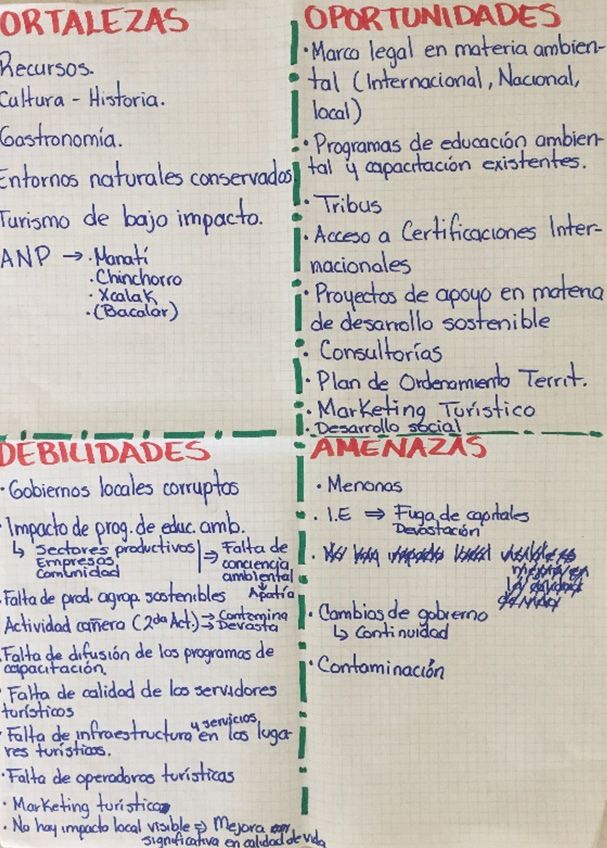 ORTALEZAS
Recursos.
Cultura - Historia.
Gastronomía.
Entornos naturales conservados
Turismo de bajo impacto.
ANP → · Manatí
· Chinchorro
· Xcalak
· (Bacalar)
OPORTUNIDADES
· Marco legal en materia ambien-
tal (Internacional, Nacional,
local)
· Programas de educación ambien-
tal y capacitación existentes.
· Tribus
· Acceso a Certificaciones Inter-
nacionales
· Proyectos de apoyo en materia
de desarrollo sostenible
· Consultorías
· Plan de Ordenamiento Territ.
· Marketing Turístico
· Desarrollo social
DEBILIDADES
· Gobiernos locales corruptos
· Impacto de prog. de educ. amb.
↳ Sectores productivos
Empresas
Comunidad
⇒ Falta de
conciencia
ambiental
↓
Apatía
· Falta de prod. agrop. sostenibles
Actividad cañera (2da Act.) ⇒ Contamina
Devasta
· Falta de difusión de los programas de
capacitación.
· Falta de calidad de los servidores
turísticos
· Falta de infraestructura y servicios en los luga-
res turísticos.
· Falta de operadoras turísticas
· Marketing turístico
· No hay impacto local visible ⇒ Mejora
significativa en calidad de vida
AMENAZAS
· I.E ⇒ Fuga de capitales
Devastación
· Cambios de gobierno
↳ Continuidad
· Contaminación